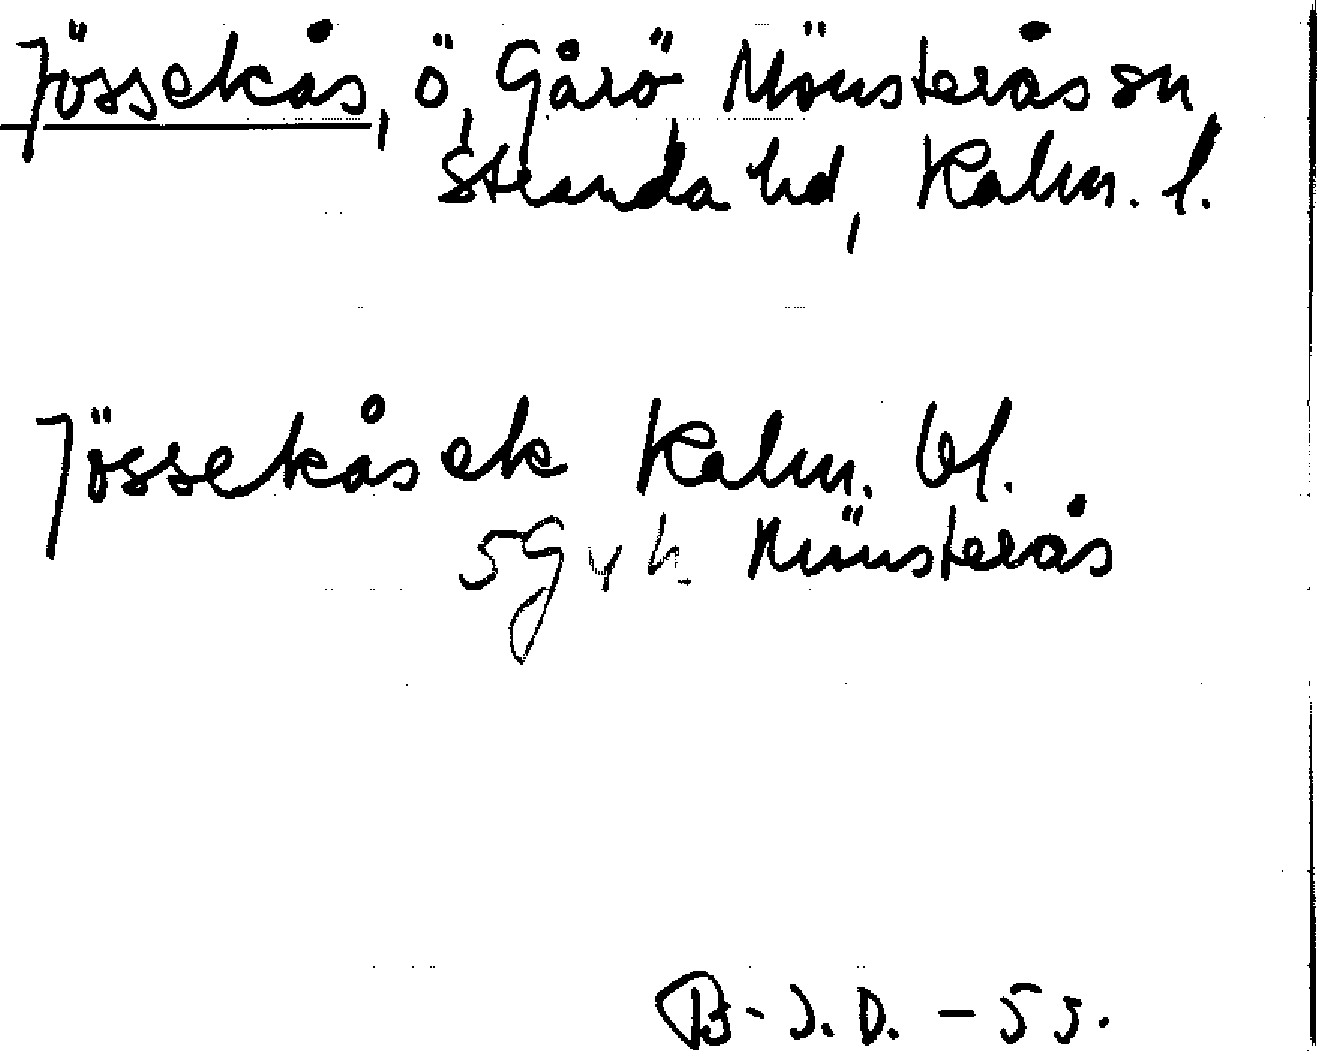 Jössekås, ö, Gårö Mönsterås sn,
Stranda hd, Kalm. l.
Jössekås ek Kalm. bl.
5G y h Mönsterås
B-J.D. - 53.